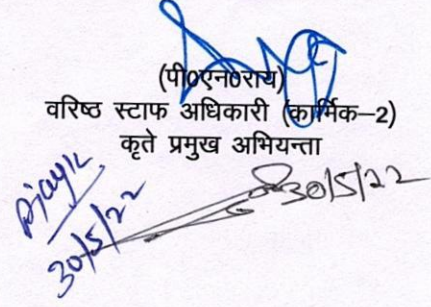 (पी0एन0राय)
वरिष्ठ स्टाफ अधिकारी (कार्मिक–2)
कृते प्रमुख अभियन्ता
30/5/22
30/5/22